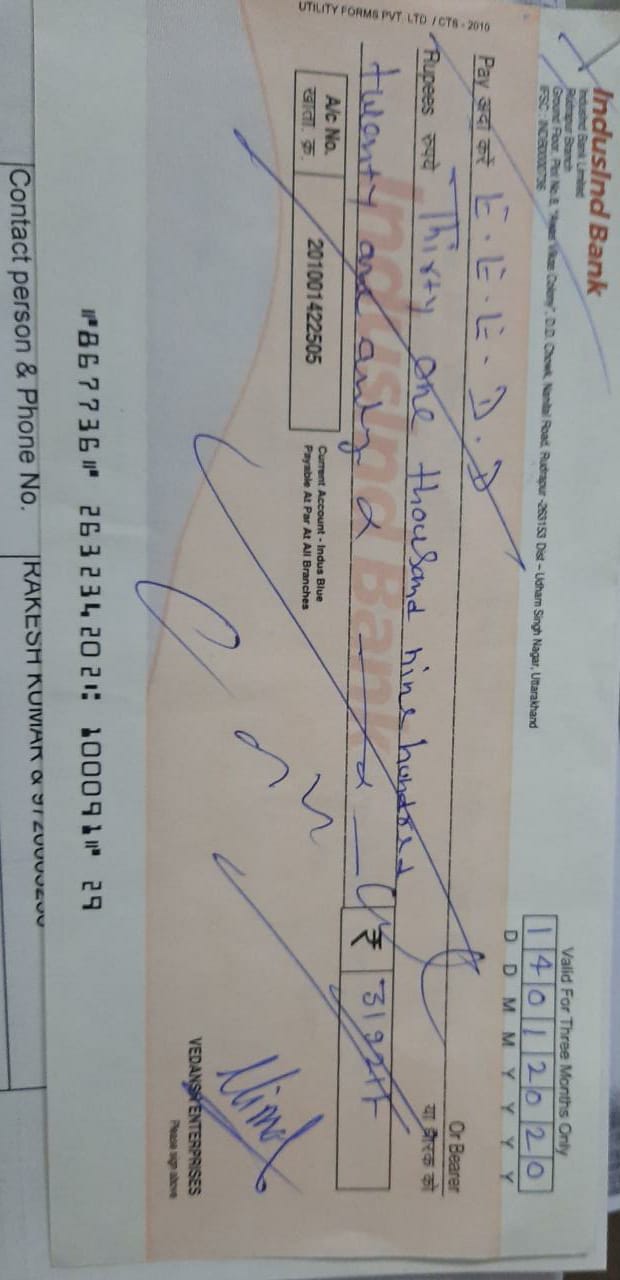 IndusInd Bank
IndusInd Bank Limited
Rudrapur Branch
Ground Floor, Plot No.8, "Awas Vikas Colony", D.D. Chowk, Nanital Road, Rudrapur -263153 Dist – Udham Singh Nagar, Uttarakhand
Valid For Three Months Only
14012020
D D M M Y Y Y Y
Pay अदा करें E.E.E.D.D
Or Bearer
या धारक को
Rupees रुपये Thirty one thousand nine hundred
twenty
₹
A/c No.
खाता. क्र.
201001422505
Current Account - Indus Blue
Payable At Par At All Branches
VEDANSH ENTERPRISES
Please sign above
UTILITY FORMS PVT. LTD / CTS - 2010
⑈867736⑈ 263234202⑆ 100091⑈ 29
Contact person & Phone No.
RAKESH KUMAR &